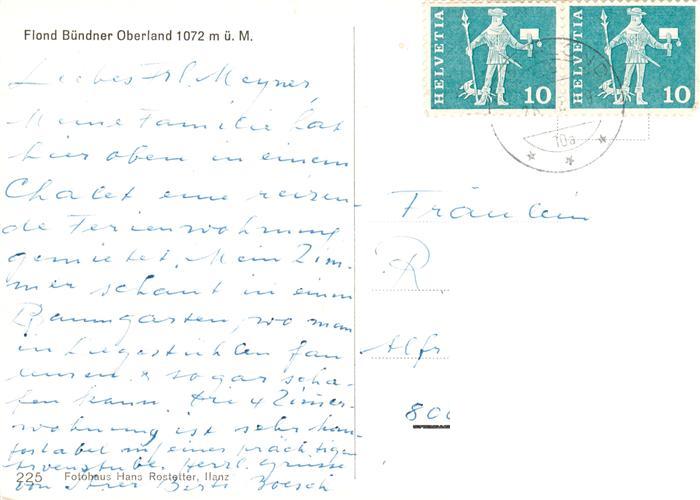 Flond Bündner Oberland 1072 m ü. M.
HELVETIA 10
HELVETIA 10
10a
Liebes Frl. Meyner,
Meine Familie hat
hier oben in einem
Chalet eine reizen-
de Ferienwohnung
gemietet. Mein Zim-
mer schaut in einen
Baumgarten, wo man
in Liegestühlen fau
lenzen & sogar schla-
fen kann. Die 4 Zimer-
wohnung ist sehr kom-
fortabel mit einer prächtigen
Arvenstube. Herzl. Grüsse
von Ihrer Berti Boesch
225 Fotohaus Hans Rostetter, Ilanz
Fräulein
R
Alfr
800